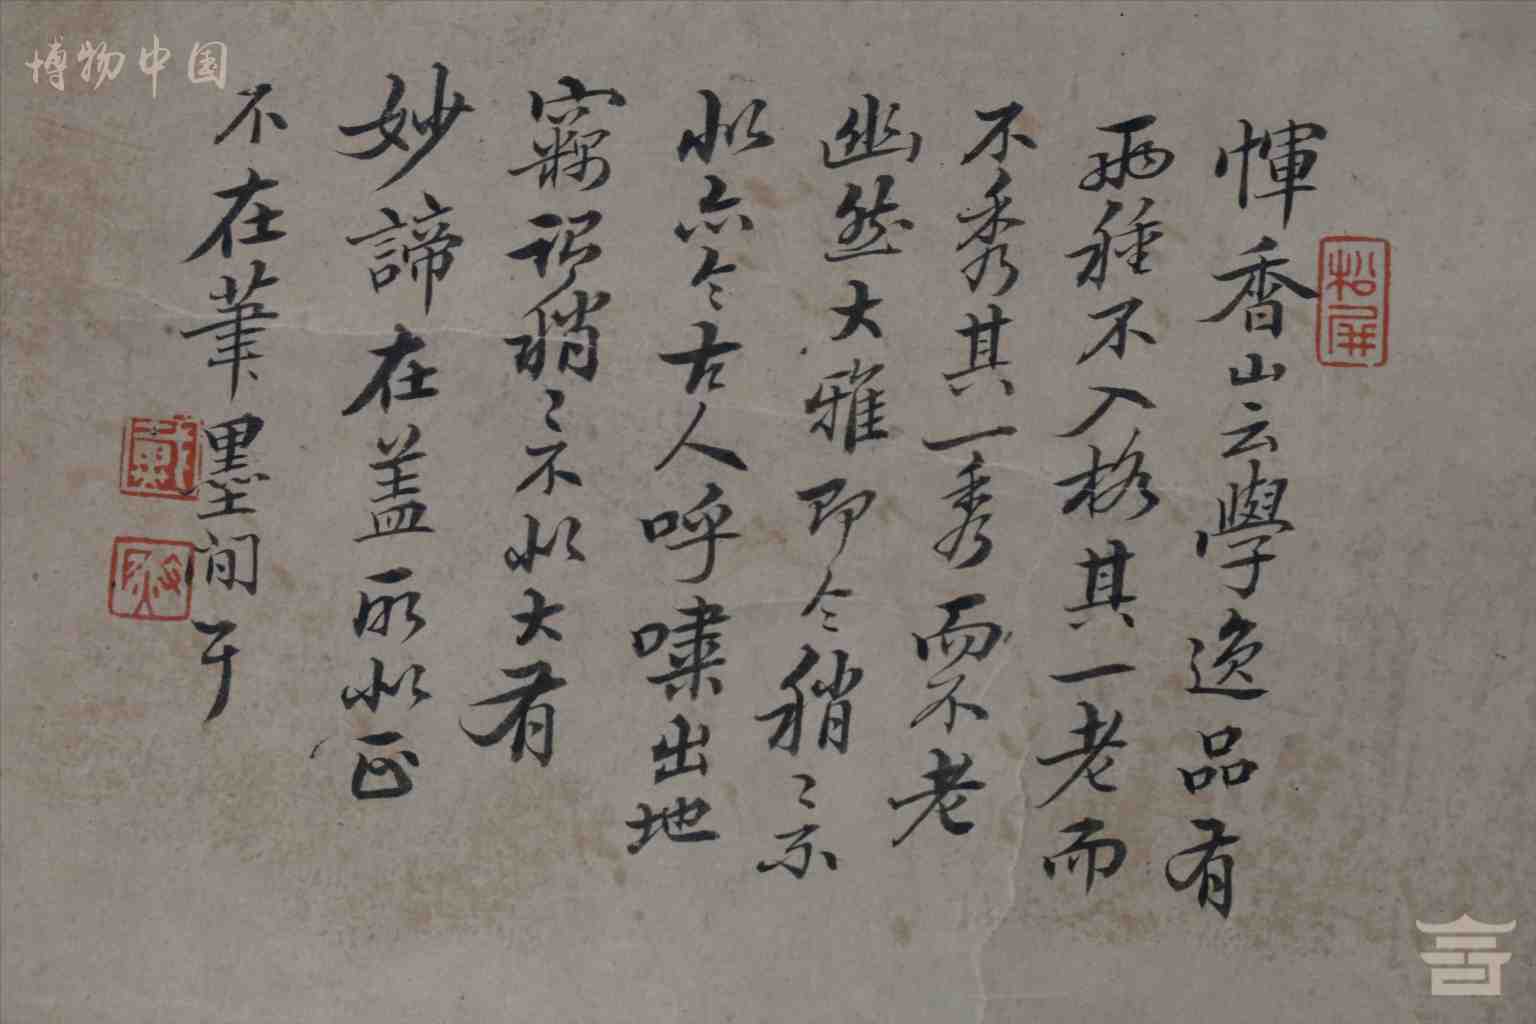 惲香山云學逸品有
兩種不入格其一老而
不秀其一秀而不老
幽然大雅即令稍〻示
似亦令古人呼嘯出地
竊謂稍〻示不似大有
妙諦在蓋所似正
不在筆墨间耳
松屏
博物中国